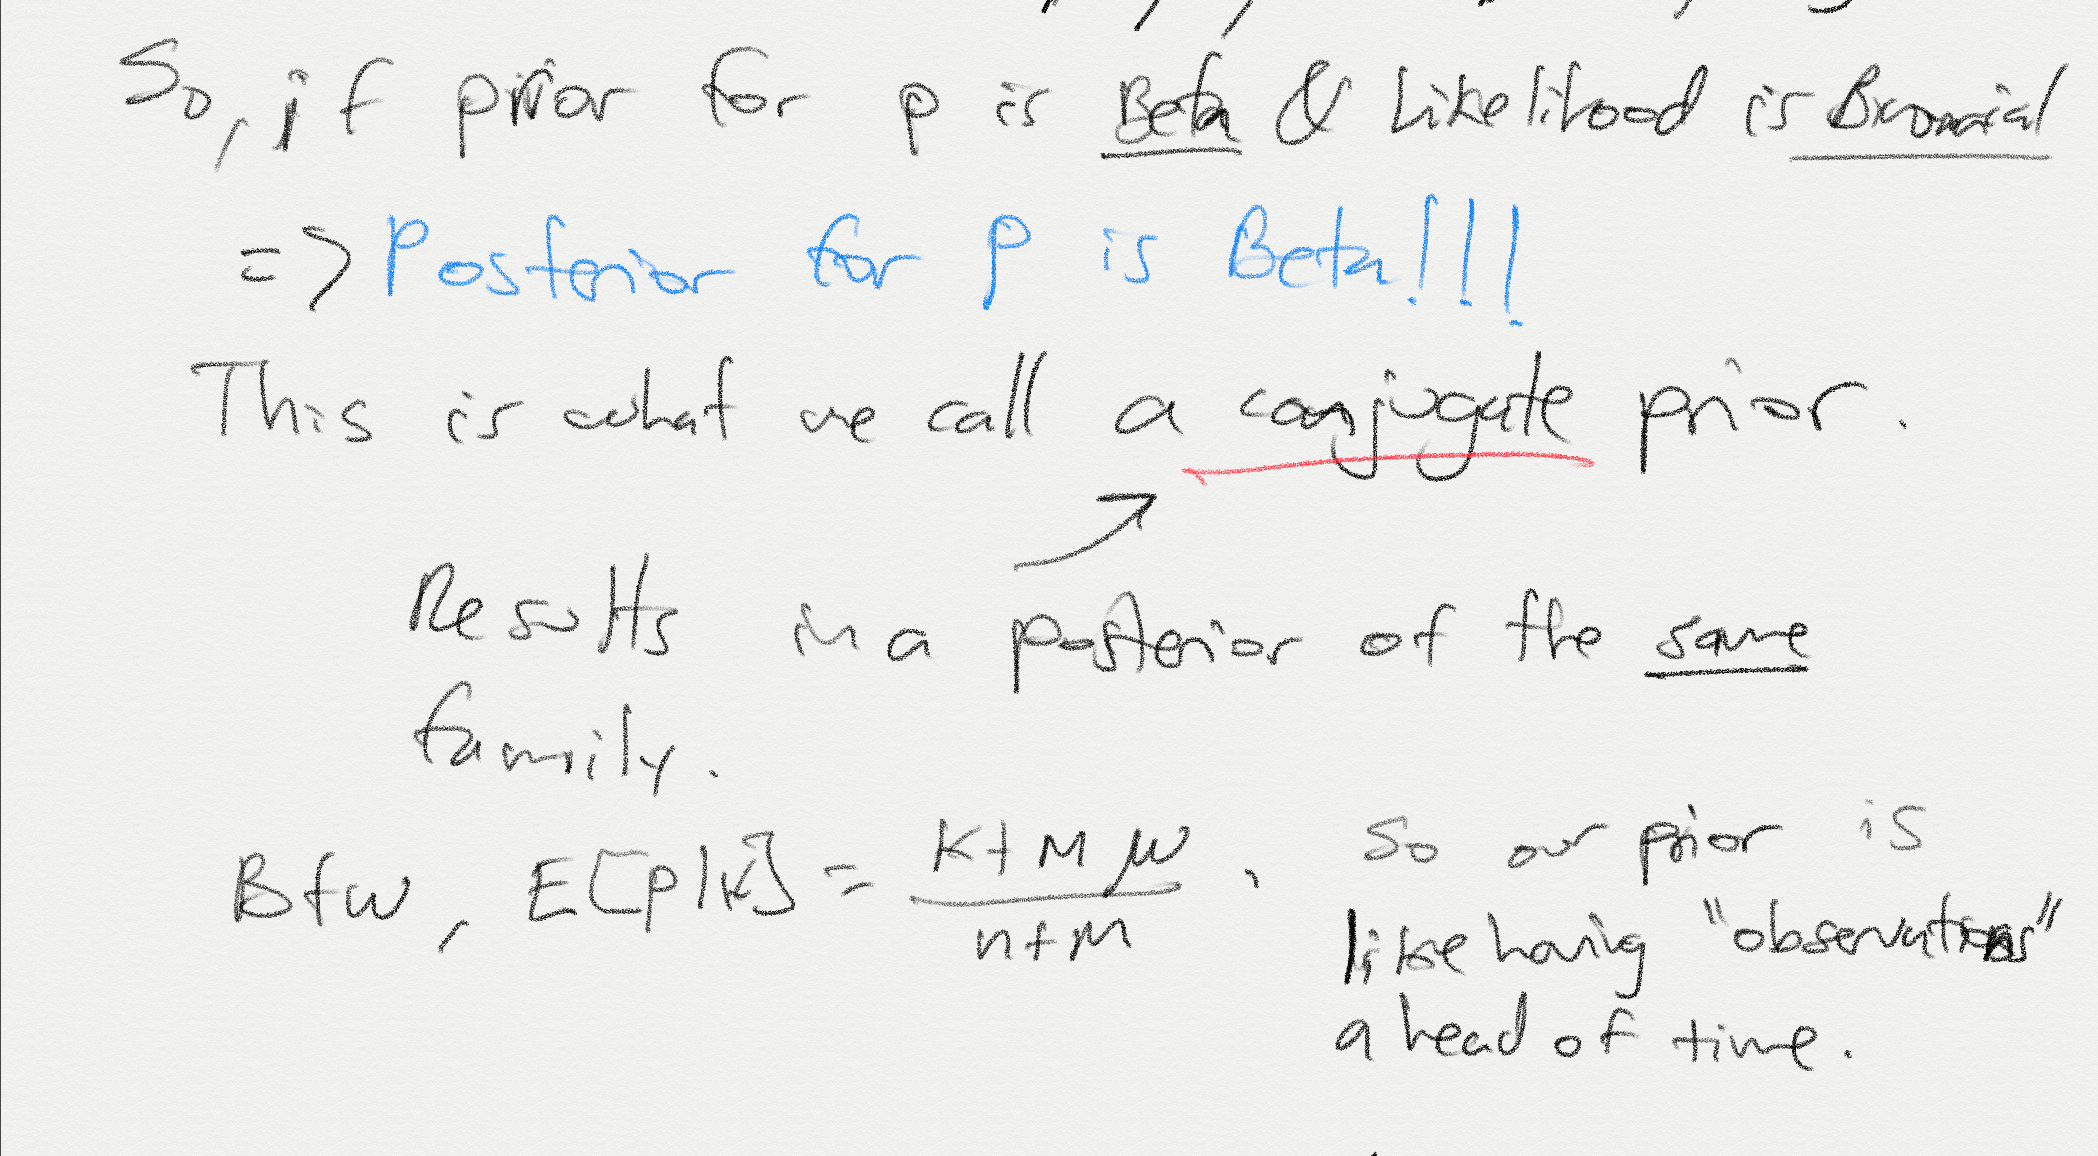 So, if prior for p is Beta & Likelihood is Binomial
=> Posterior for p is Beta!!!
This is what we call a conjugate prior.
Results in a posterior of the same
family.
Btw, E[p|k] = (k+Mμ)/(n+M). So our prior is
like having "observations"
ahead of time.